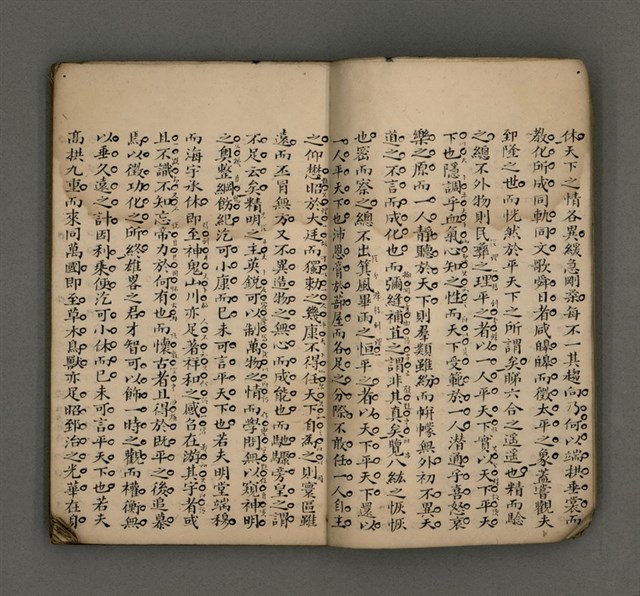 休天下之情各異緩急剛柔每不一其趨向乃何以端拱垂裳而
教化所成同軌同文歌舜日者咸皞皞而徵太平之象蓋嘗觀夫
郅隆之世而恍然於平天下之所謂矣睇六合之遥遥也精而驗
之總不外物則民彝之理平之者以一人平天下實以天下平天
下也隱調乎血氣心知之性而天下受範於一人潜通乎喜怒哀
樂之原而一人靜聽於天下則羣類雖紛而幈幪無外初不異天
道之不言而成化也而彌縫補苴之謂非其真矣覽八紘之恢恢
也密而察之總不出箕風畢雨之恒平之者以天下平天下還以
一人平天下也沛恩膏於部屋而各足之分際不敢任一人自主
之仰懋昭於大廷而獨勅之幾康不得任天下自為之則寰區雖
遠而丕冒無方又不異造物之無心而成能也而馳驟旁皇之謂
不足云矣精明之主英銳可以制萬物之情而學問無以窺神明
之奥整綱飭紀汔可小康而已未可言平天下也若夫明堂端穆
而海宇承休即至神鬼山川亦足著祥和之感召在游其宇者或
且不識不知忘帝力於何有也而懷古者且得於既平之後追慕
焉以徵功化之所終雄畧之君才智可以飾一時之觀而權衡無
以垂久遠之計因利乘便汔可小休而已未可言平天下也若夫
高拱九重而來同萬國即至草木鳥獸亦足昭郅治之光華在自